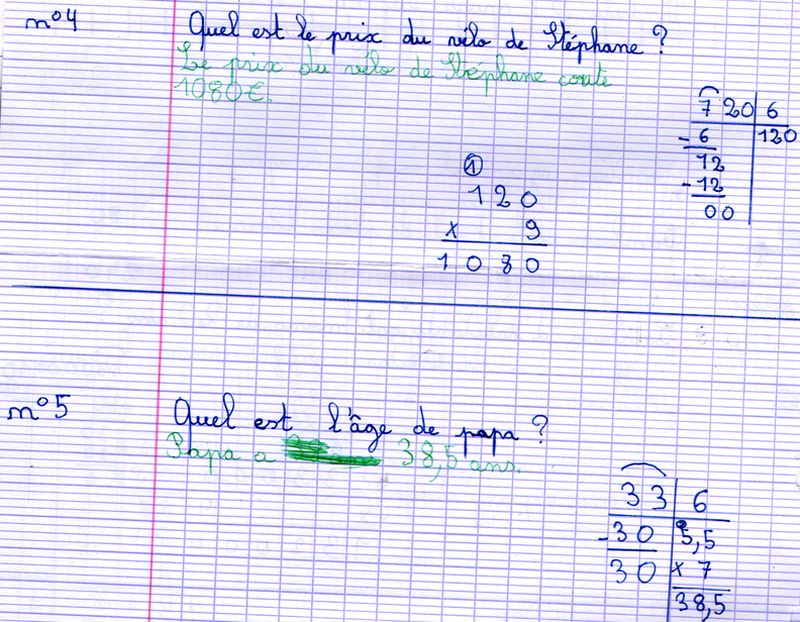 n°4
Quel est le prix du vélo de Stéphane ?
Le prix du vélo de Stéphane coute
1080€.
720 | 6
- 6 | 120
12
- 12
00
1
120
x 9
1080
n°5
Quel est l'âge de papa ?
Papa a 38,5 ans.
33 | 6
- 30 | 5,5
30 | x 7
38,5